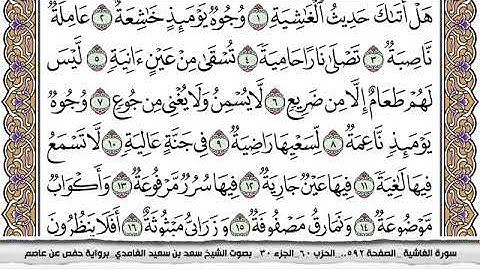 هَلْ أَتَىٰكَ حَدِيثُ الْغَٰشِيَةِ ١ وُجُوهٌ يَوْمَئِذٍ خَٰشِعَةٌ ٢ عَامِلَةٌ
نَّاصِبَةٌ ٣ تَصْلَىٰ نَارًا حَامِيَةً ٤ تُسْقَىٰ مِنْ عَيْنٍ ءَانِيَةٍ ٥ لَّيْسَ
لَهُمْ طَعَامٌ إِلَّا مِن ضَرِيعٍ ٦ لَّا يُسْمِنُ وَلَا يُغْنِي مِن جُوعٍ ٧ وُجُوهٌ
يَوْمَئِذٍ نَّاعِمَةٌ ٨ لِّسَعْيِهَا رَاضِيَةٌ ٩ فِي جَنَّةٍ عَالِيَةٍ ١٠ لَّا تَسْمَعُ
فِيهَا لَٰغِيَةً ١١ فِيهَا عَيْنٌ جَارِيَةٌ ١٢ فِيهَا سُرُرٌ مَّرْفُوعَةٌ ١٣ وَأَكْوَابٌ
مَّوْضُوعَةٌ ١٤ وَنَمَارِقُ مَصْفُوفَةٌ ١٥ وَزَرَابِيُّ مَبْثُوثَةٌ ١٦ أَفَلَا يَنظُرُونَ
سورة الغاشية _الصفحة ٥٩٢_الحزب ٦٠_الجزء ٣٠_ بصوت الشيخ سعد بن سعيد الغامدي_برواية حفص عن عاصم